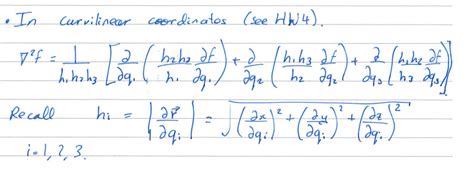 • In curvilinear coordinates (see HW4).
∇²f = 1/(h₁h₂h₃) [∂/∂q₁ (h₂h₃/h₁ ∂f/∂q₁) + ∂/∂q₂ (h₁h₃/h₂ ∂f/∂q₂) + ∂/∂q₃ (h₁h₂/h₃ ∂f/∂q₃)]
Recall hᵢ = |∂r⃗/∂qᵢ| = √((∂x/∂qᵢ)² + (∂y/∂qᵢ)² + (∂z/∂qᵢ)²)
i=1,2,3.